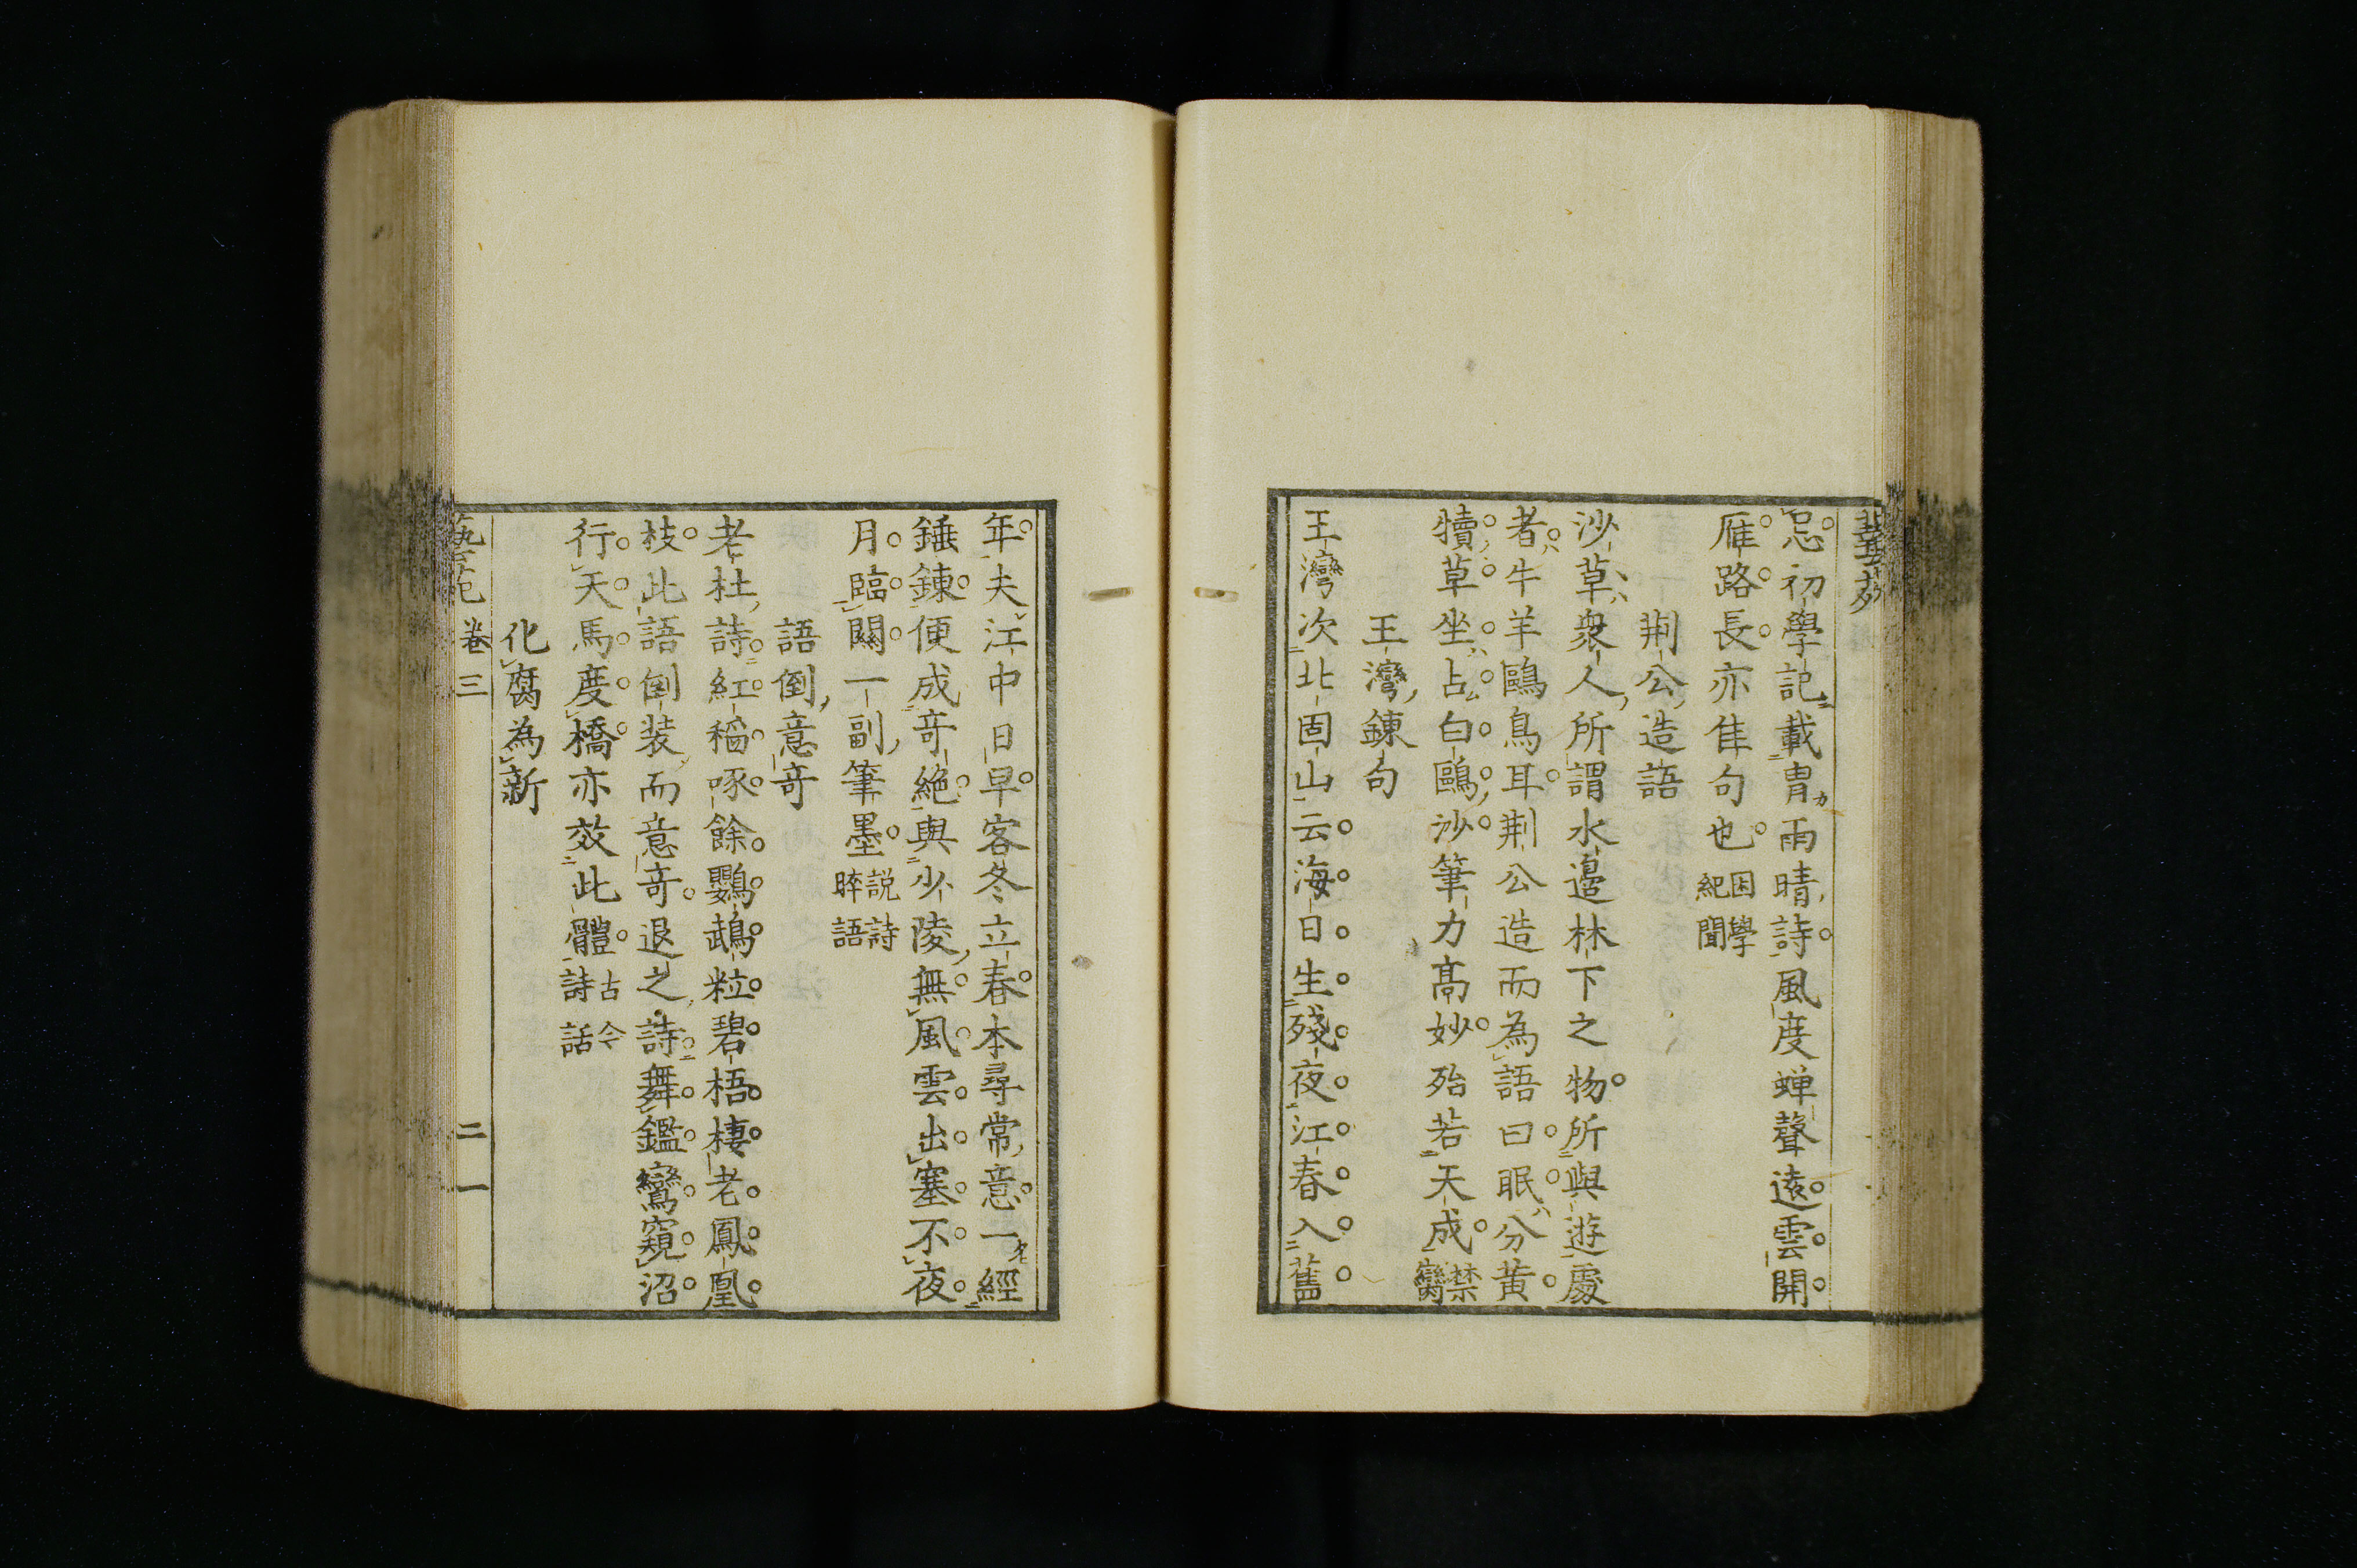 忌初學記載胄雨晴詩風度蝉聲遠雲開
雁路長亦佳句也困學紀聞
荆公造語
沙草衆人所謂水邉林下之物所與遊處
者牛羊鷗鳥耳荆公造而為語曰眠分黄
犢草坐占白鷗沙筆力髙妙殆若天成禁臠
王灣錬句
王灣次北固山云海日生殘夜江春入舊
年夫江中日早客冬立春本尋常意一經
錘錬便成竒絶與少陵無風雲出塞不夜
月臨關一副筆墨説詩晬語
語倒意竒
老杜詩紅稻啄餘鸚鵡粒碧梧棲老鳳凰
枝此語倒装而意竒退之詩舞鑑鸞窺沼
行天馬度橋亦效此體古今詩話
化腐為新
藝苑 卷三 二一